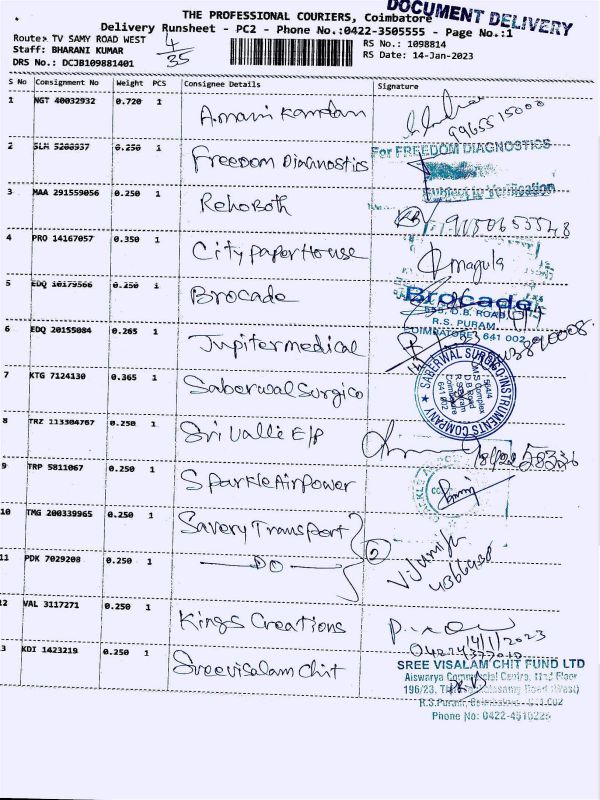 THE PROFESSIONAL COURIERS, Coimbatore
DOCUMENT DELIVERY
Delivery Runsheet - PC2 - Phone No.:0422-3505555 - Page No.:1
Route: TV SAMY ROAD WEST
4/35
RS No.: 1098814
Staff: BHARANI KUMAR
RS Date: 14-Jan-2023
DRS No.: DCJB109881401
S No Consignment No Weight PCS Consignee Details Signature
1 NGT 40032932 0.720 1 Amani Kandan
9965515000
2 SLM 5208937 0.250 1 Freedom Diagnostics
For FREEDOM DIAGNOSTICS
Subject to Verification
3 MAA 291559056 0.250 1 Rehoboth
4 PRO 14167057 0.350 1 City Paper House
5 EDQ 10179566 0.250 1 Brocade
Brocade
D.B. ROAD
R.S. PURAM,
COIMBATORE 641 002
6 EDQ 20155084 0.265 1 Jupiter medical
7 KTG 7124130 0.365 1 Saberwal Surgico
SABERWAL SURGICO INSTRUMENTS COMPANY
D.B Road
R.S.Puram
Coimbatore
641 002
8 TRZ 113304767 0.250 1 Sri Valli E/P
9 TRP 5811067 0.250 1 Sparkle Air Power
10 TMG 200339965 0.250 1 Savery Transport
2
11 PDK 7029208 0.250 1 DO
12 VAL 3117271 0.250 1 Kings Creations
14/1/2023
13 KDI 1423219 0.250 1 Sreevisalam Chit
SREE VISALAM CHIT FUND LTD
Aiswarya Commercial Centre, Floor
196/23, Road (West)
R.S.Puram,
Phone No: 0422-4516225